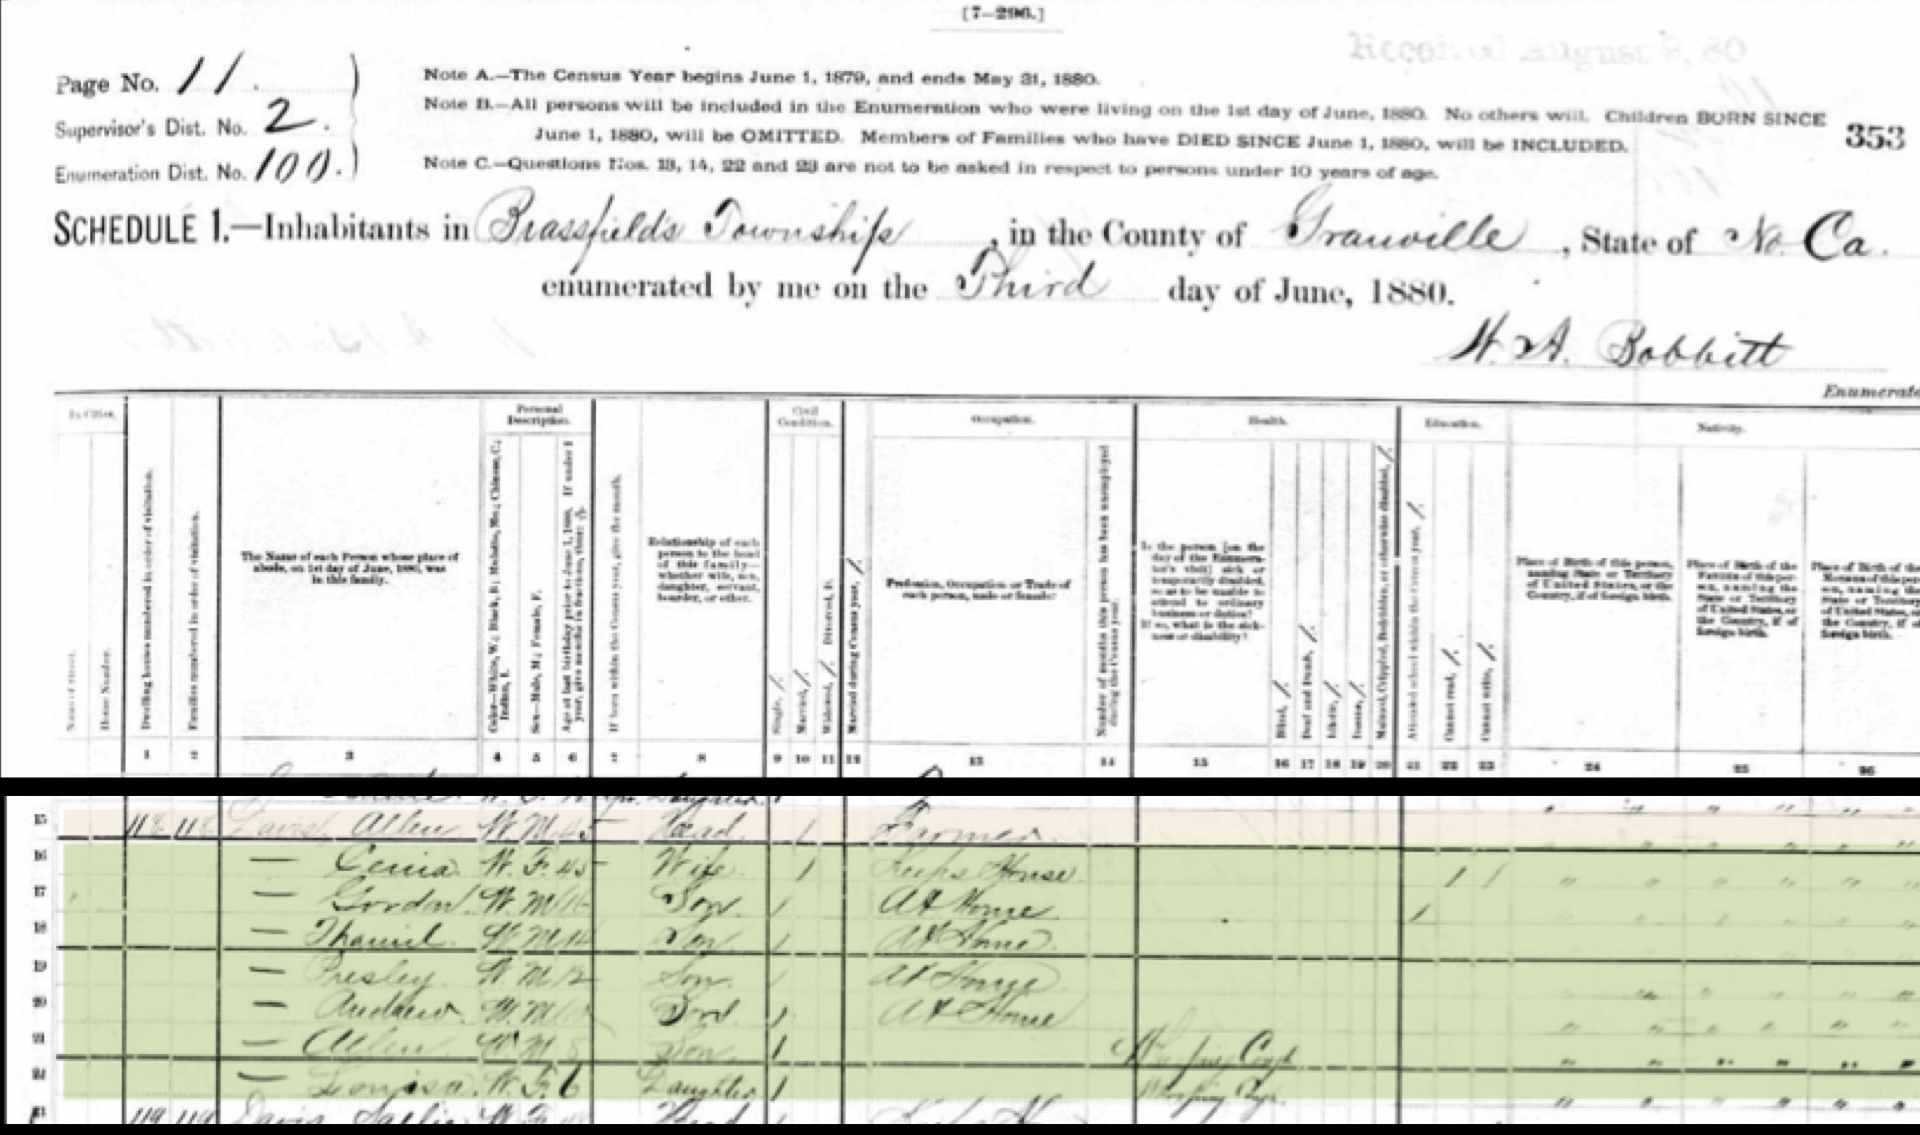 [7—296.]
Received August 9, 80
Page No. 11.
Supervisor's Dist. No. 2.
Enumeration Dist. No. 100.
Note A.—The Census Year begins June 1, 1879, and ends May 31, 1880.
Note B.—All persons will be included in the Enumeration who were living on the 1st day of June, 1880. No others will. Children BORN SINCE
June 1, 1880, will be OMITTED. Members of Families who have DIED SINCE June 1, 1880, will be INCLUDED.
Note C.—Questions Nos. 13, 14, 22 and 23 are not to be asked in respect to persons under 10 years of age.
353
SCHEDULE 1.—Inhabitants in Brassfields Township, in the County of Granville, State of No. Ca.
enumerated by me on the Third day of June, 1880.
Bobbitt
Enumerato
In Cities.
Name of Street.
House Number.
Dwelling houses numbered in order of visitation.
Families numbered in order of visitation.
The Name of each Person whose place of
abode, on 1st day of June, 1880, was
in this family.
Personal
Description.
Color—White, W.; Black, B.; Mulatto, Mu.; Chinese, C.;
Indian, I.
Sex—Male, M.; Female, F.
Age at last birthday prior to June 1, 1880. If under 1
year, give months in fractions, thus:
If born within the Census year, give the month.
Relationship of each
person to the head
of this family—
whether wife, son,
daughter, servant,
boarder, or other.
Civil
Condition.
Single, /.
Married, /.
Widowed, /. Divorced, D.
Married during Census year, /.
Occupation.
Profession, Occupation or Trade of
each person, male or female.
Number of months this person has been unemployed
during the Census year.
Health.
Is the person [on the
day of the Enumera-
tor's visit] sick or
temporarily disabled,
so as to be unable to
attend to ordinary
business or duties?
If so, what is the sick-
ness or disability?
Blind, /.
Deaf and Dumb, /.
Idiotic, /.
Insane, /.
Maimed, Crippled, Bedridden, or otherwise disabled, /.
Education.
Attended school within the Census year, /.
Cannot read, /.
Cannot write, /.
Nativity.
Place of Birth of this person,
naming State or Territory
of United States, or the
Country, if of foreign birth.
Place of Birth of the
Father of this per-
son, naming the
State or Territory
of United States, or
the Country, if of
foreign birth.
Place of Birth of the
Mother of this per
son, naming the
State or Territory
of United States, or
the Country, if of
foreign birth.
1 2 3 4 5 6 7 8 9 10 11 12 13 14 15 16 17 18 19 20 21 22 23 24 25 26
15 118 118 Davis, Allen W. M. 45 Head 1 Farmer " " " " " "
16 — W. F. 45 Wife 1 Keeps House 1 1 " " " " " "
17 — Gordon W. M. 16 Son 1 At Home 1 " " " " " "
18 — W. M. 14 Son 1 At Home " " " " " "
19 — Presley W. M. 12 Son At Home " " " " " "
20 — Andrew W. M. Son 1 At Home " " " " " "
21 — Allen W. M. 8 Son 1 Whooping Cough " " " " " "
22 — Louisa W. F. 6 Daughter 1 " " " " " "
119 119 Davis Sallie W. F. Head